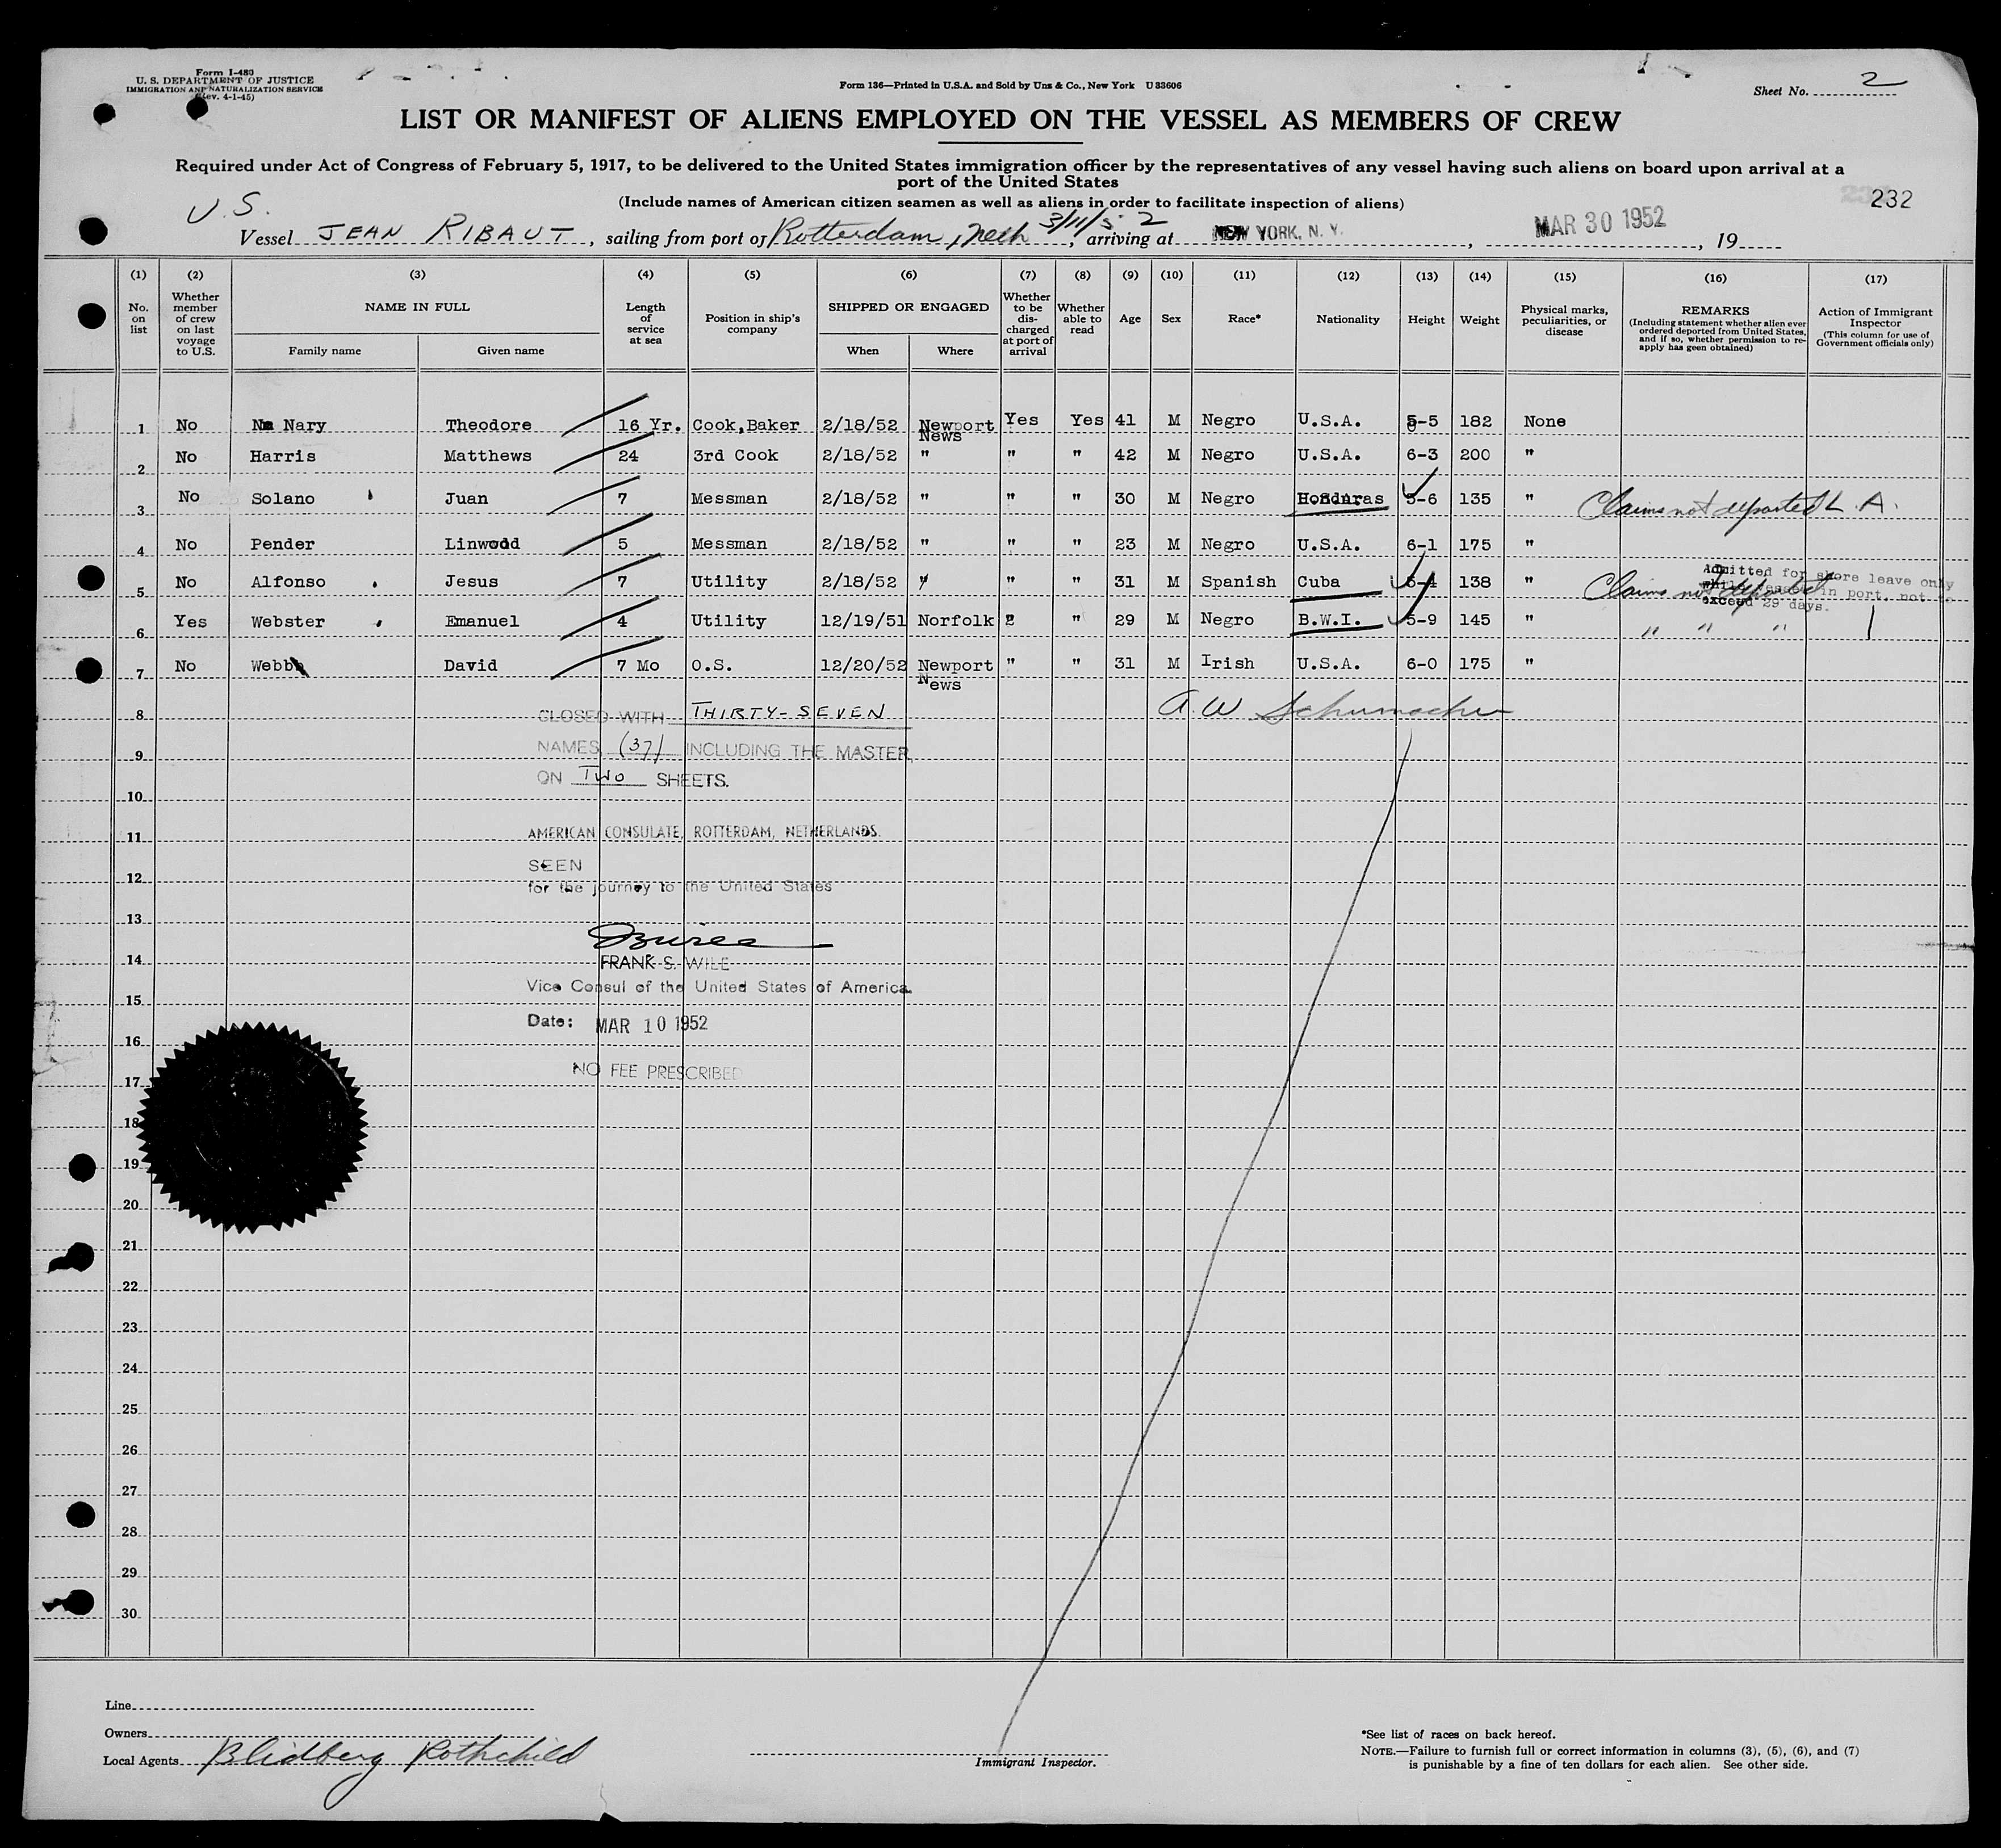 Form I-480
U. S. DEPARTMENT OF JUSTICE
IMMIGRATION AND NATURALIZATION SERVICE
(Rev. 4-1-45)
Form 136—Printed in U.S.A. and Sold by Unz & Co., New York U 33606
Sheet No. 2
LIST OR MANIFEST OF ALIENS EMPLOYED ON THE VESSEL AS MEMBERS OF CREW
Required under Act of Congress of February 5, 1917, to be delivered to the United States immigration officer by the representatives of any vessel having such aliens on board upon arrival at a
port of the United States
(Include names of American citizen seamen as well as aliens in order to facilitate inspection of aliens)
232
U.S.
Vessel JEAN RIBAUT, sailing from port of Rotterdam, Neth 3/11/52, arriving at NEW YORK, N. Y., MAR 30 1952, 19
(1) (2) (3) (4) (5) (6) (7) (8) (9) (10) (11) (12) (13) (14) (15) (16) (17)
No. on list
Whether member of crew on last voyage to U.S.
NAME IN FULL
Family name
Given name
Length of service at sea
Position in ship's company
SHIPPED OR ENGAGED
When
Where
Whether to be discharged at port of arrival
Whether able to read
Age
Sex
Race*
Nationality
Height
Weight
Physical marks, peculiarities, or disease
REMARKS
(Including statement whether alien ever ordered deported from United States, and if so, whether permission to re-apply has geen obtained)
Action of Immigrant Inspector
(This column for use of Government officials only)
1 No Nary Theodore 16 Yr. Cook,Baker 2/18/52 Newport News Yes Yes 41 M Negro U.S.A. 5-5 182 None
2 No Harris Matthews 24 3rd Cook 2/18/52 " " " 42 M Negro U.S.A. 6-3 200 "
3 No Solano Juan 7 Messman 2/18/52 " " " 30 M Negro Honduras 5-6 135 " Claims not deported L.A.
4 No Pender Linwood 5 Messman 2/18/52 " " " 23 M Negro U.S.A. 6-1 175 "
5 No Alfonso Jesus 7 Utility 2/18/52 " " " 31 M Spanish Cuba 5-4 138 " Claims not deported
Admitted for shore leave only
while vessel in port, not to
exceed 29 days.
6 Yes Webster Emanuel 4 Utility 12/19/51 Norfolk " " 29 M Negro B.W.I. 5-9 145 " " " "
7 No Webb David 7 Mo O.S. 12/20/52 Newport News " " 31 M Irish U.S.A. 6-0 175 "
8
CLOSED WITH THIRTY-SEVEN
A.W Schumacher
9
NAMES (37) INCLUDING THE MASTER
ON TWO SHEETS.
10
11
AMERICAN CONSULATE, ROTTERDAM, NETHERLANDS.
SEEN
12
for the journey to the United States
13
14
FRANK S. WILE
Vice Consul of the United States of America
15
Date: MAR 10 1952
16
NO FEE PRESCRIBED
17
18
19
20
21
22
23
24
25
26
27
28
29
30
Line
Owners
Local Agents Blidberg Rothchild
Immigrant Inspector.
*See list of races on back hereof.
NOTE.—Failure to furnish full or correct information in columns (3), (5), (6), and (7)
is punishable by a fine of ten dollars for each alien. See other side.